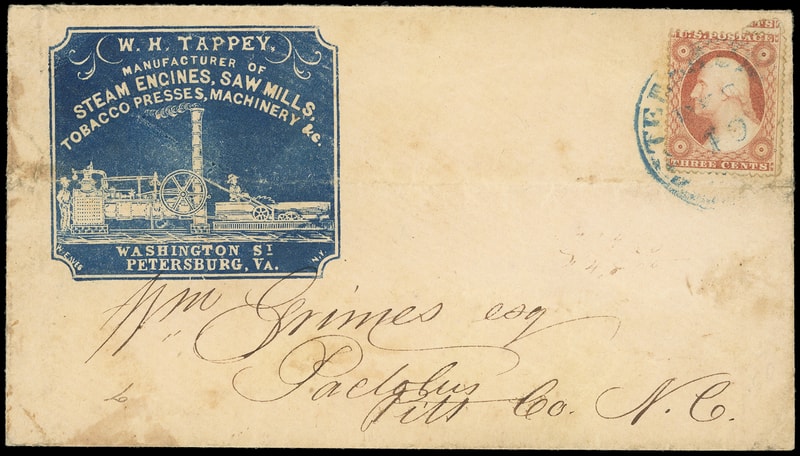 W. H. TAPPEY,
MANUFACTURER OF
STEAM ENGINES, SAW MILLS,
TOBACCO PRESSES, MACHINERY &c.
WASHINGTON ST
PETERSBURG, VA.
N.Y.
U.S. POSTAGE
THREE CENTS
Wm Grimes esq
Pactolus
Pitt Co. N.C.